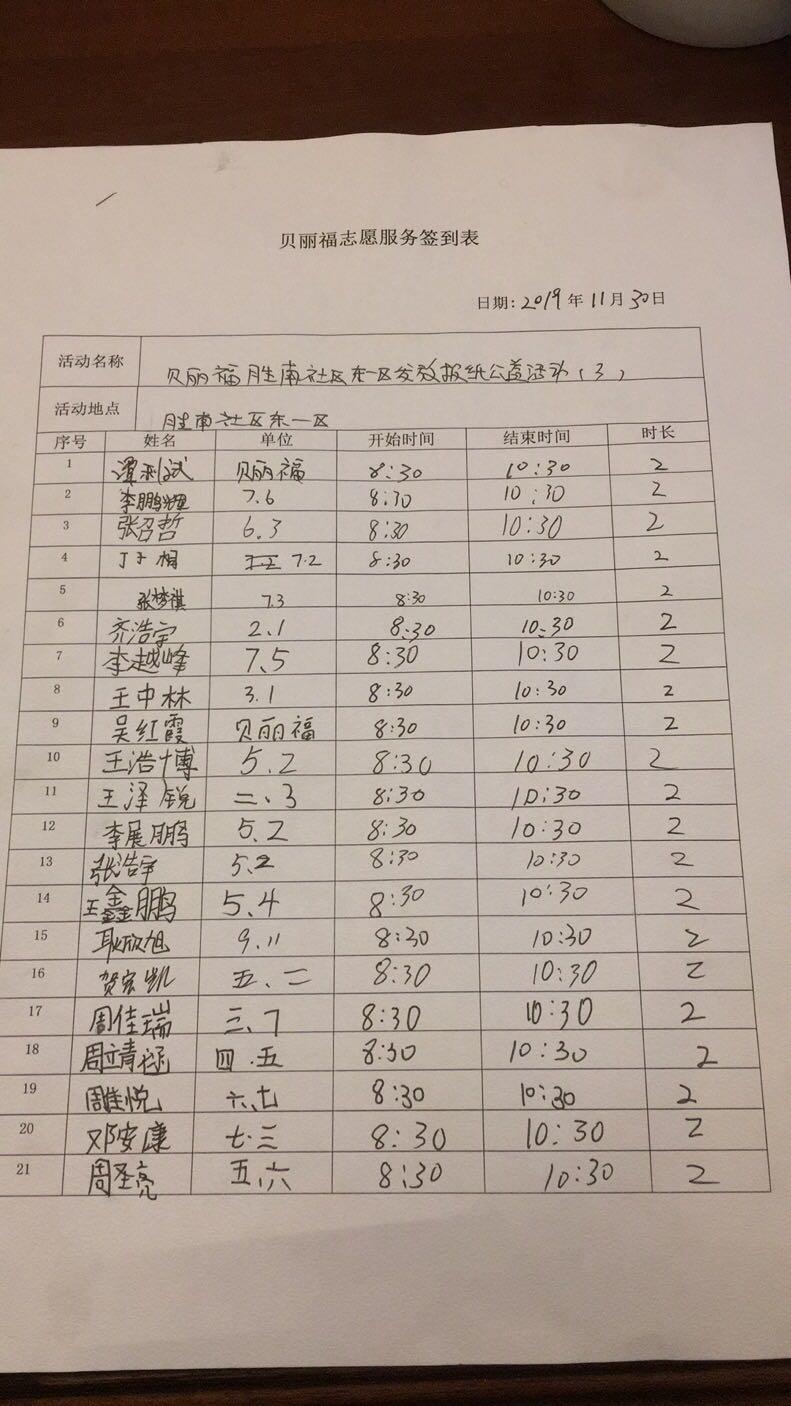 贝丽福志愿服务签到表
日期: 2019 年 11 月 30 日
活动名称 贝丽福胜南社区东一区发放报纸公益活动(3)
活动地点 胜南社区东一区
序号 姓名 单位 开始时间 结束时间 时长
1 贝丽福 8:30 10:30 2
2 李鹏 7.6 8:30 10:30 2
3 张召哲 6.3 8:30 10:30 2
4 丁子相 7.2 8:30 10:30 2
5 张梦祺 7.3 8:30 10:30 2
6 齐浩宇 2.1 8:30 10:30 2
7 李越峰 7.5 8:30 10:30 2
8 王中林 3.1 8:30 10:30 2
9 吴红霞 贝丽福 8:30 10:30 2
10 王浩博 5.2 8:30 10:30 2
11 王泽锐 二、3 8:30 10:30 2
12 李展鹏 5.2 8:30 10:30 2
13 张浩宇 5.2 8:30 10:30 2
14 王鑫鹏 5.4 8:30 10:30 2
15 耿欣旭 9.11 8:30 10:30 2
16 贺宏凯 五、二 8:30 10:30 2
17 周佳瑞 三、7 8:30 10:30 2
18 周靖涵 四.五 8:30 10:30 2
19 周佳悦 六、七 8:30 10:30 2
20 邓安康 七.三 8:30 10:30 2
21 周圣亮 五、六 8:30 10:30 2